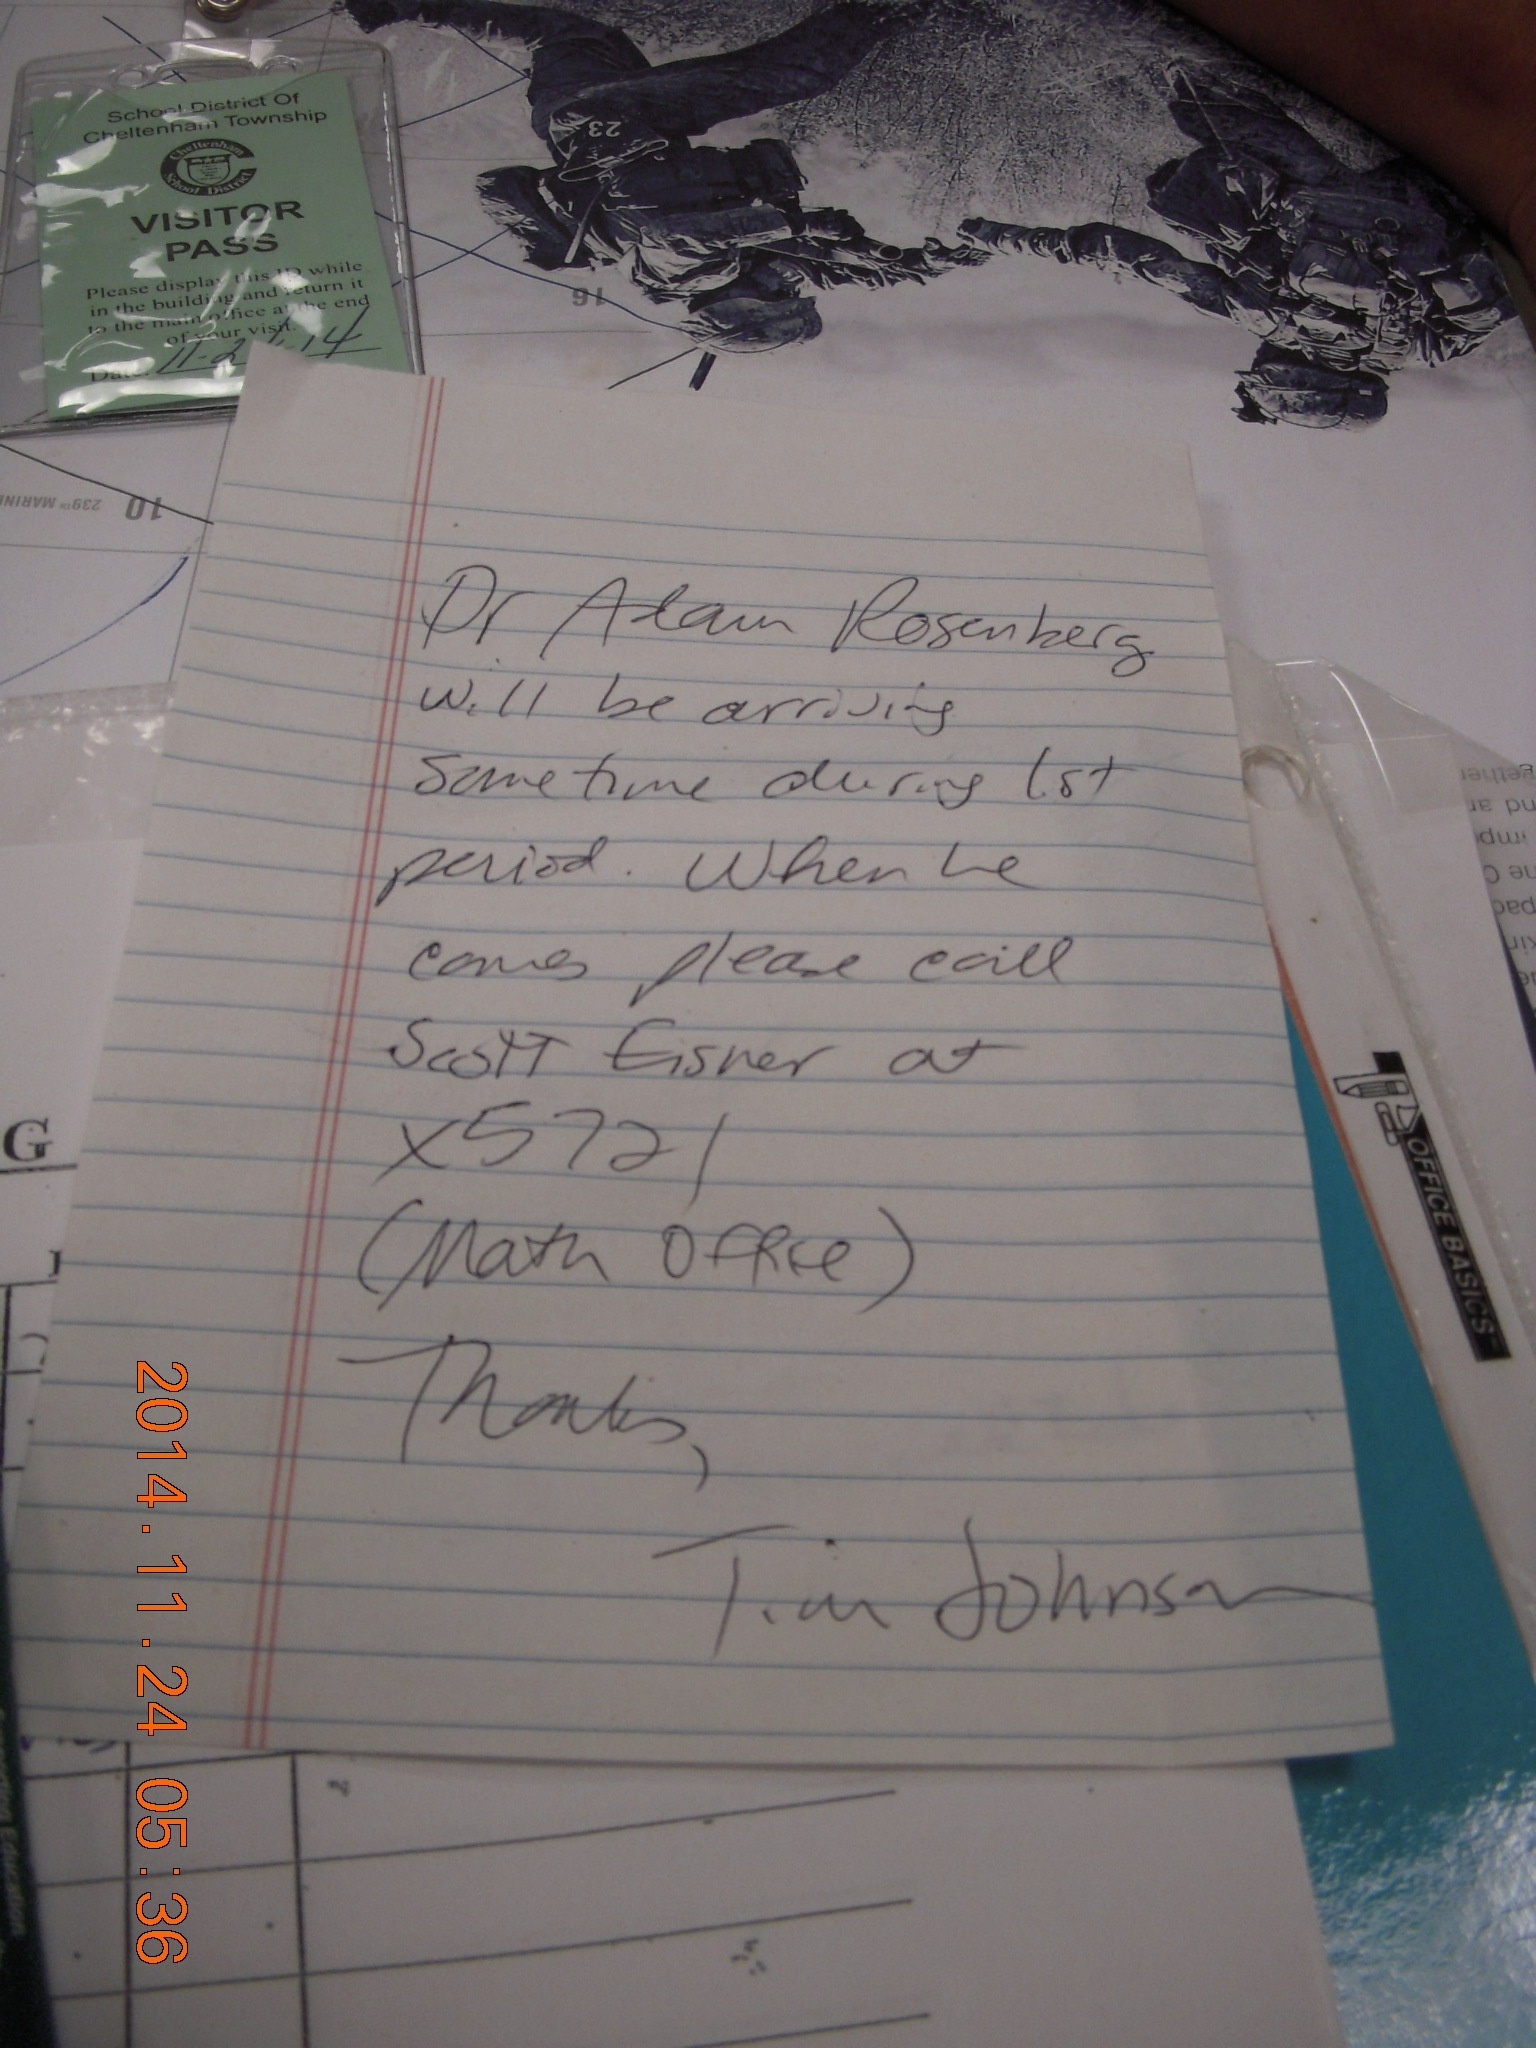 School District Of
Cheltenham Township
Cheltenham
School District
VISITOR
PASS
Please display this ID while
in the building and return it
to the main office at the end
of your visit.
Date: 11-24-14
23
16
10
239TH MARINE
Dr Adam Rosenberg
will be arriving
sometime during 1st
period. When he
comes please call
Scott Eisner at
x5721
(Math Office)
Thanks,
Tim Johnson
OFFICE BASICS
G
2014.11.24 05:36